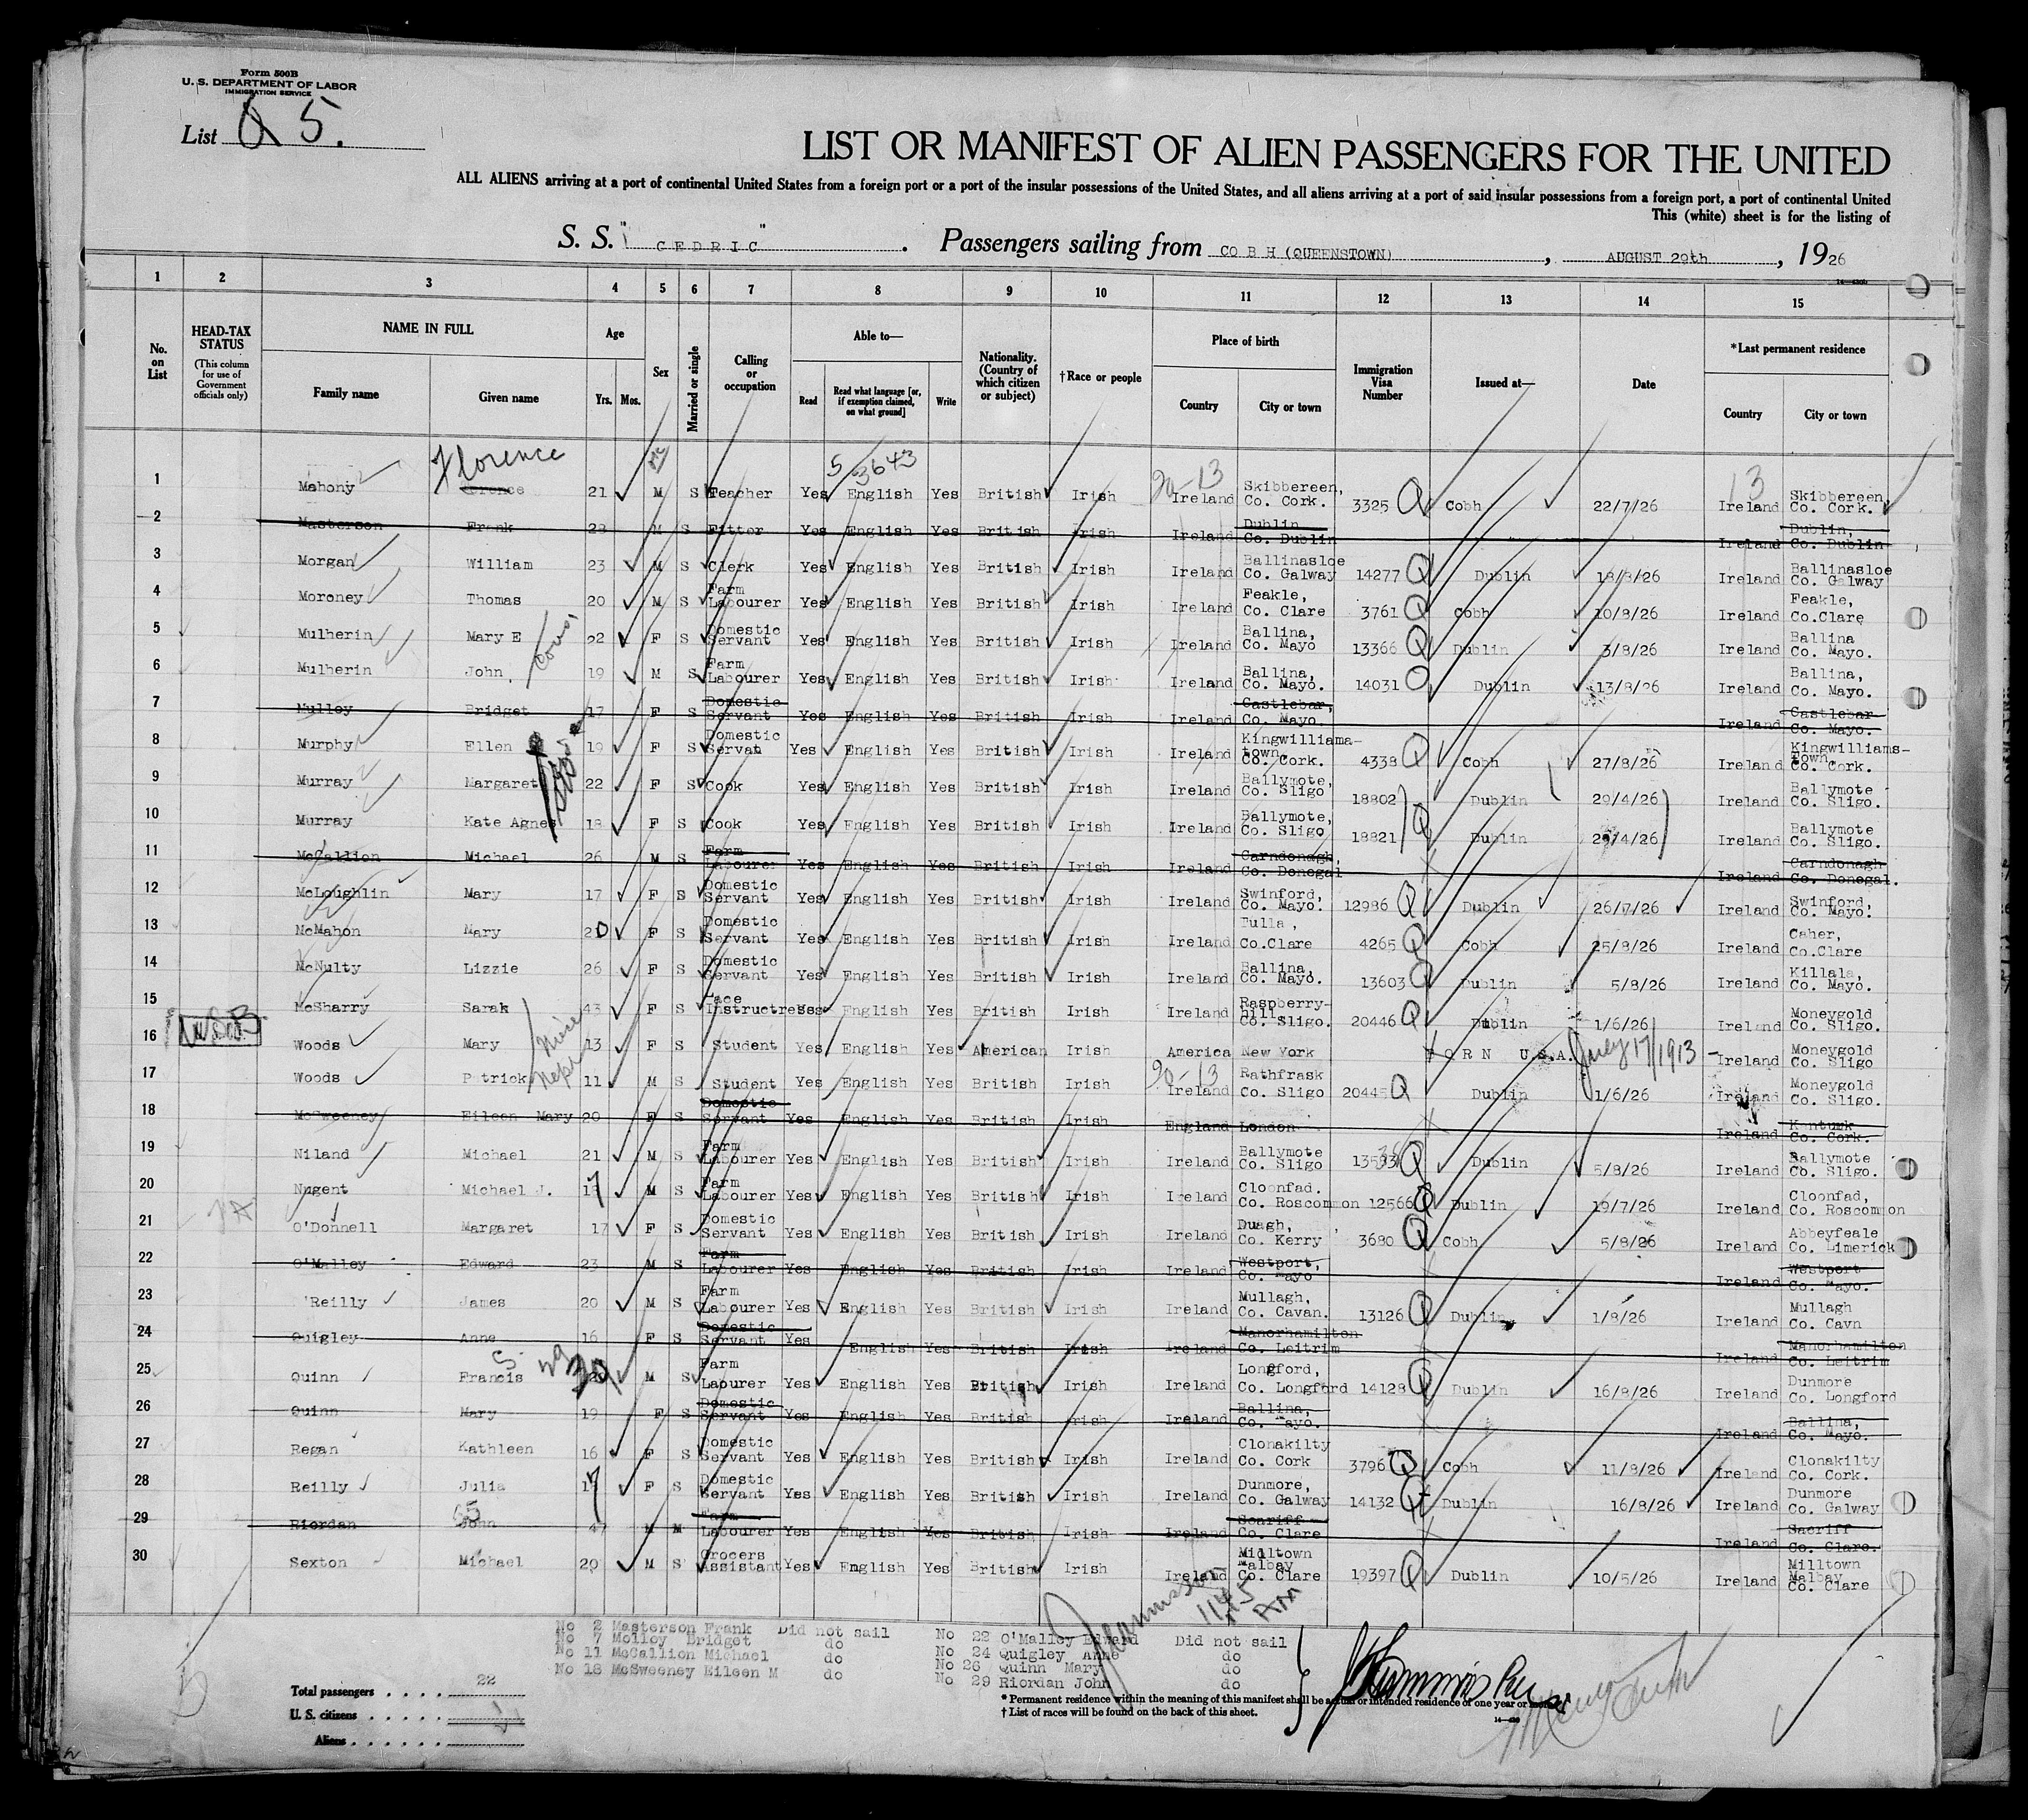 Form 500B
U. S. DEPARTMENT OF LABOR
IMMIGRATION SERVICE
List 5.
LIST OR MANIFEST OF ALIEN PASSENGERS FOR THE UNITED
ALL ALIENS arriving at a port of continental United States from a foreign port or a port of the insular possessions of the United States, and all aliens arriving at a port of said insular possessions from a foreign port, a port of continental United
This (white) sheet is for the listing of
S. S. "CEDRIC" . Passengers sailing from COBH (QUEENSTOWN) , AUGUST 29th , 1926
1 2 3 4 5 6 7 8 9 10 11 12 13 14 15
No. on List HEAD-TAX STATUS (This column for use of Government officials only) NAME IN FULL Family name Given name Age Yrs. Mos. Sex Married or single Calling or occupation Able to— Read Read what language [or, if exemption claimed, on what ground] Write Nationality. (Country of which citizen or subject) †Race or people Place of birth Country City or town Immigration Visa Number Issued at— Date *Last permanent residence Country City or town
Florence
5 3643
1 Mahony 21 M S Teacher Yes English Yes British Irish Ireland Skibbereen, Co. Cork. 3325 Q Cobh 22/7/26 Ireland Skibbereen, Co. Cork.
2 Masterson Frank 28 M S Fitter Yes English Yes British Irish Ireland Dublin Co. Dublin Ireland Dublin, Co. Dublin
3 Morgan William 23 M S Clerk Yes English Yes British Irish Ireland Ballinasloe Co. Galway 14277 Q Dublin 18/8/26 Ireland Ballinasloe Co. Galway
4 Moroney Thomas 20 M S Farm Labourer Yes English Yes British Irish Ireland Feakle, Co. Clare 3761 Q Cobh 10/8/26 Ireland Feakle, Co.Clare
5 Mulherin Mary E 22 F S Domestic Servant Yes English Yes British Irish Ireland Ballina, Co. Mayo 13366 Q Dublin 3/8/26 Ireland Ballina Co. Mayo.
6 Mulherin John, 19 M S Farm Labourer Yes English Yes British Irish Ireland Ballina, Co. Mayo. 14031 Dublin 13/8/26 Ireland Ballina, Co. Mayo.
7 Mulloy Bridget 17 F S Domestic Servant Yes English Yes British Irish Ireland Castlebar, Co. Mayo. Ireland Castlebar Co. Mayo.
8 Murphy Ellen 19 F S Domestic Servan Yes English Yes British Irish Ireland Kingwilliams-town, Co. Cork. 4338 Q Cobh 27/8/26 Ireland Kingwilliams-town, Co. Cork.
9 Murray Margaret 22 F S Cook Yes English Yes British Irish Ireland Ballymote, Co. Sligo 18802 Dublin 29/4/26 Ireland Ballymote Co. Sligo.
10 Murray Kate Agnes 18 F S Cook Yes English Yes British Irish Ireland Ballymote, Co. Sligo 18821 Q Dublin 29/4/26 Ireland Ballymote Co. Sligo.
11 McCallion Michael 26 M S Farm Labourer Yes English Yes British Irish Ireland Carndonagh, Co. Donegal Ireland Carndonagh Co. Donegal.
12 McLoughlin Mary 17 F S Domestic Servant Yes English Yes British Irish Ireland Swinford, Co. Mayo. 12986 Q Dublin 26/7/26 Ireland Swinford, Co. Mayo.
13 McMahon Mary 20 F S Domestic Servant Yes English Yes British Irish Ireland Tulla, Co.Clare 4265 Q Cobh 25/8/26 Ireland Caher, Co.Clare
14 McNulty Lizzie 26 F S Domestic Servant Yes English Yes British Irish Ireland Ballina, Co. Mayo. 13603 Q Dublin 5/8/26 Ireland Killala, Co. Mayo.
15 McSharry Sarah 43 F S Lace Instructress Yes English Yes British Irish Ireland Raspberry-hill, Co. Sligo. 20446 Q Dublin 1/6/26 Ireland Moneygold Co. Sligo.
16 Woods Mary 13 F S Student Yes English Yes American Irish America New York BORN U.S.A. July 17/1913 Ireland Moneygold Co. Sligo
17 Woods Patrick 11 M S Student Yes English Yes British Irish Ireland Rathfrask Co. Sligo 20445 Q Dublin 1/6/26 Ireland Moneygold Co. Sligo.
18 McSweeney Eileen Mary 20 F S Domestic Servant Yes English Yes British Irish England London Ireland Kanturk Co. Cork.
19 Niland Michael 21 M S Farm Labourer Yes English Yes British Irish Ireland Ballymote Co. Sligo Q Dublin 5/8/26 Ireland Ballymote Co. Sligo.
20 Nugent Michael J. 17 M S Farm Labourer Yes English Yes British Irish Ireland Cloonfad. Co. Roscommon 12566 Q Dublin 19/7/26 Ireland Cloonfad, Co. Roscommon
21 O'Donnell Margaret 17 F S Domestic Servant Yes English Yes British Irish Ireland Duagh, Co. Kerry 3680 Q Cobh 5/8/26 Ireland Abbeyfeale Co. Limerick
22 O'Malley Edward 23 M S Farm Labourer Yes English Yes British Irish Ireland Westport, Co. Mayo Ireland Westport Co. Mayo.
23 'Reilly James 20 M S Farm Labourer Yes English Yes British Irish Ireland Mullagh, Co. Cavan. 13126 Q Dublin 1/8/26 Ireland Mullagh Co. Cavn
24 Quigley Anne 16 F S Domestic Servant Yes English Yes British Irish Ireland Manorhamilton Co. Leitrim Ireland Manorhamilton Co. Leitrim
25 Quinn Francis S. M S Farm Laourer Yes English Yes British Irish Ireland Longford, Co. Longford 14128 Q Dublin 16/8/26 Ireland Dunmore Co. Longford
26 Quinn Mary 19 F S Domestic Servant Yes English Yes British Irish Ireland Ballina, Co. Mayo. Ireland Ballina, Co. Mayo.
27 Regan Kathleen 16 F S Domestic Servant Yes English Yes British Irish Ireland Clonakilty Co. Cork 3796 Q Cobh 11/8/26 Ireland Clonakilty Co. Cork.
28 Reilly Julia F S Domestic Servant Yes English Yes British Irish Ireland Dunmore, Co. Galway 14132 Q Dublin 16/8/26 Ireland Dunmore Co. Galway
29 Riordan John 47 M M Farm Labourer Yes English Yes British Irish Ireland Scariff Co. Clare Ireland Sacriff Co. Clare.
30 Sexton Michael 29 M S Grocers Assistant Yes English Yes British Irish Ireland Milltown Malbay Co. Clare 19397 Q Dublin 10/5/26 Ireland Milltown Malbay Co. Clare
No 2 Masterson Frank Did not sail No 22 O'Malley Edward Did not sail
No 7 Molloy Bridget do No 24 Quigley Anne do
No 11 McCallion Michael do No 26 Quinn Mary do
No 18 McSweeney Eileen M do No 29 Riordan John do
Total passengers . . . . 22
U. S. citizens . . . . .
Aliens . . . . . .
* Permanent residence within the meaning of this manifest shall be actual or intended residence of one year or more.
† List of races will be found on the back of this sheet.